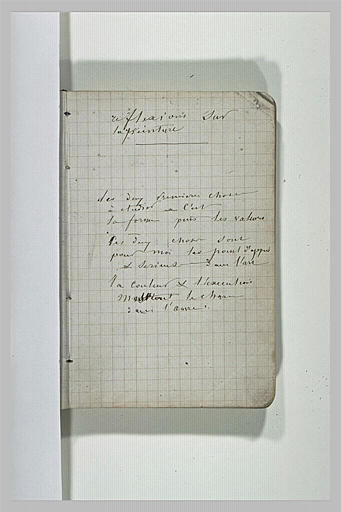 reflexions sur
la peinture
les deux premieres choses
à etudier c'est
la forme puis les valeurs
Ces deux choses sont
pour moi les points d'appuis
serieux dans l'art
la couleur & l'execution
mettent le charme
dans l'œuvre.